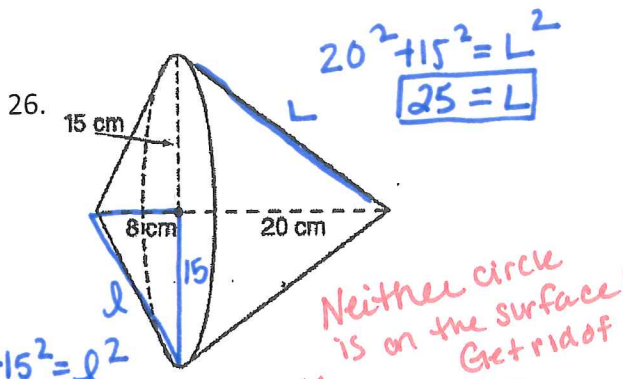 20² + 15² = L²
25 = L
26.
15 cm
L
8 cm
20 cm
15
l
15² = l²
Neither circle
is on the surface
Get rid of